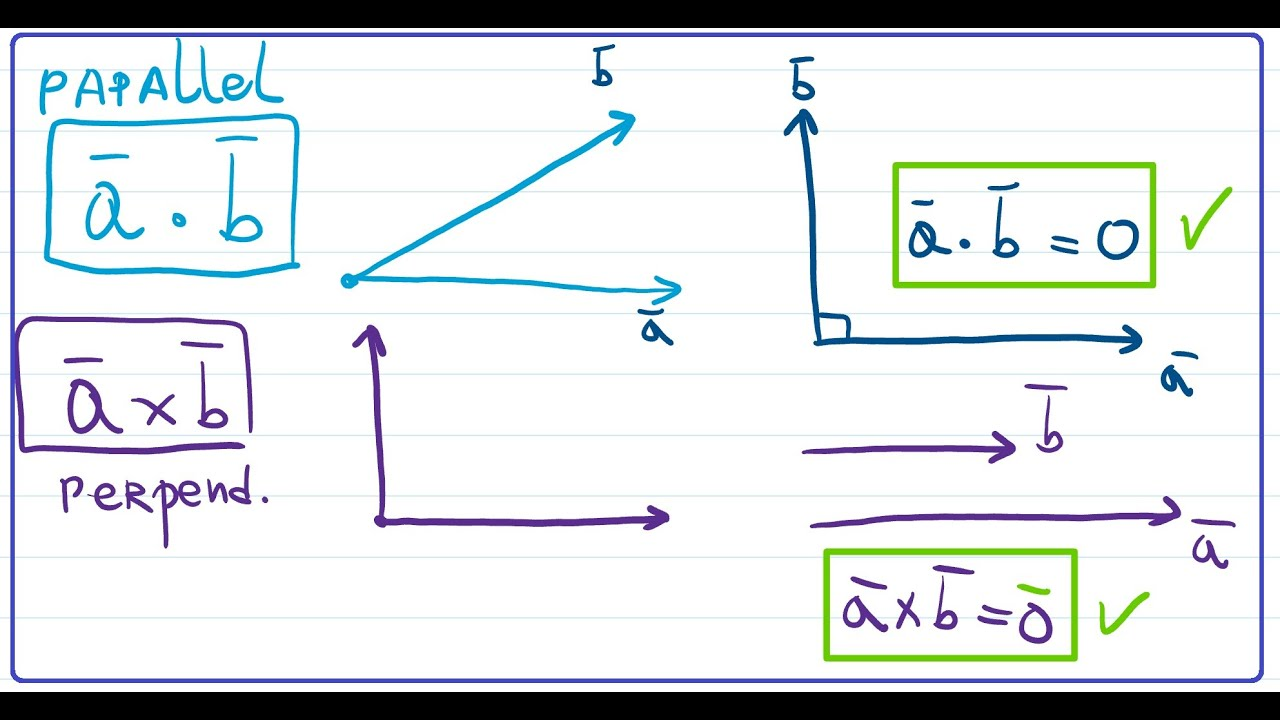 PAPAllel
a̅ · b̅
b̅
a̅
b̅
a̅ · b̅ = 0 ✓
a̅
a̅ × b̅
perpend.
b̅
a̅
a̅ × b̅ = 0̅ ✓